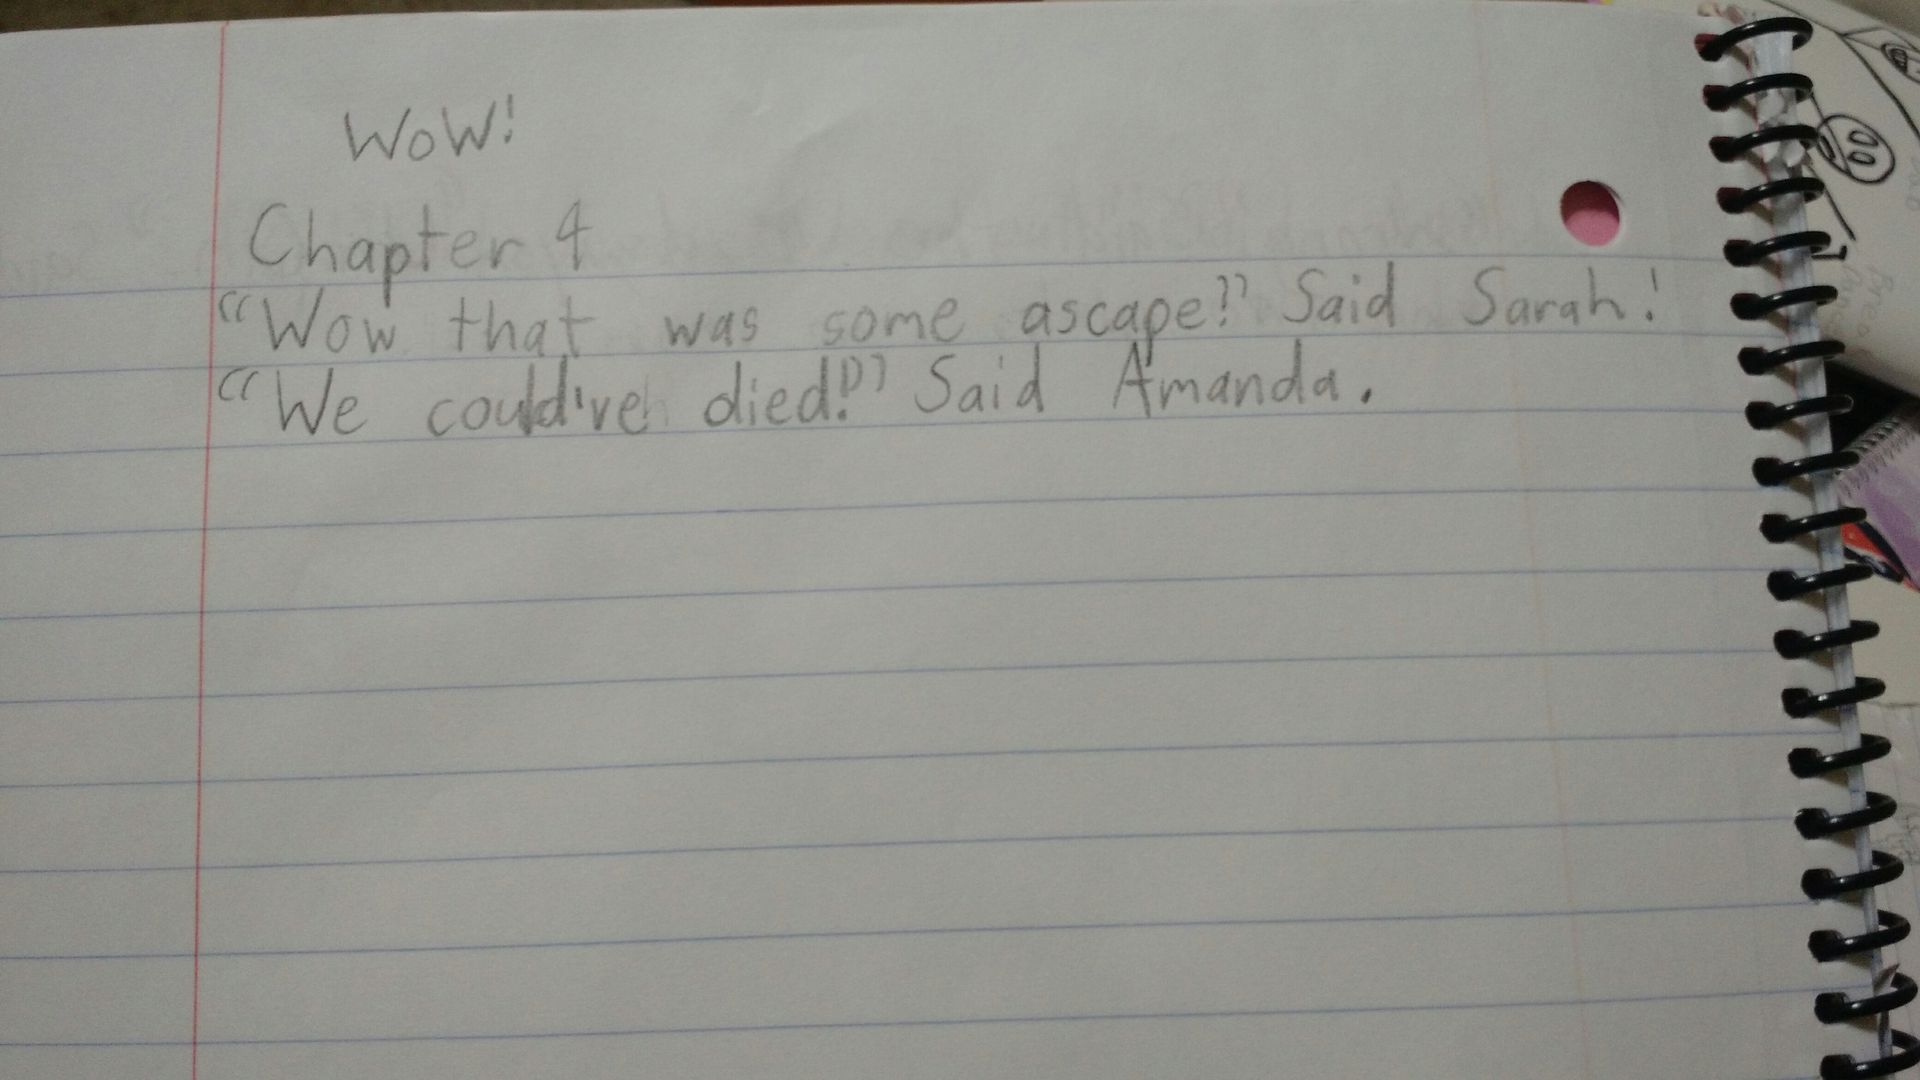 WoW!
Chapter 4
"Wow that was some ascape!" Said Sarah!
"We could've died!" Said Amanda.